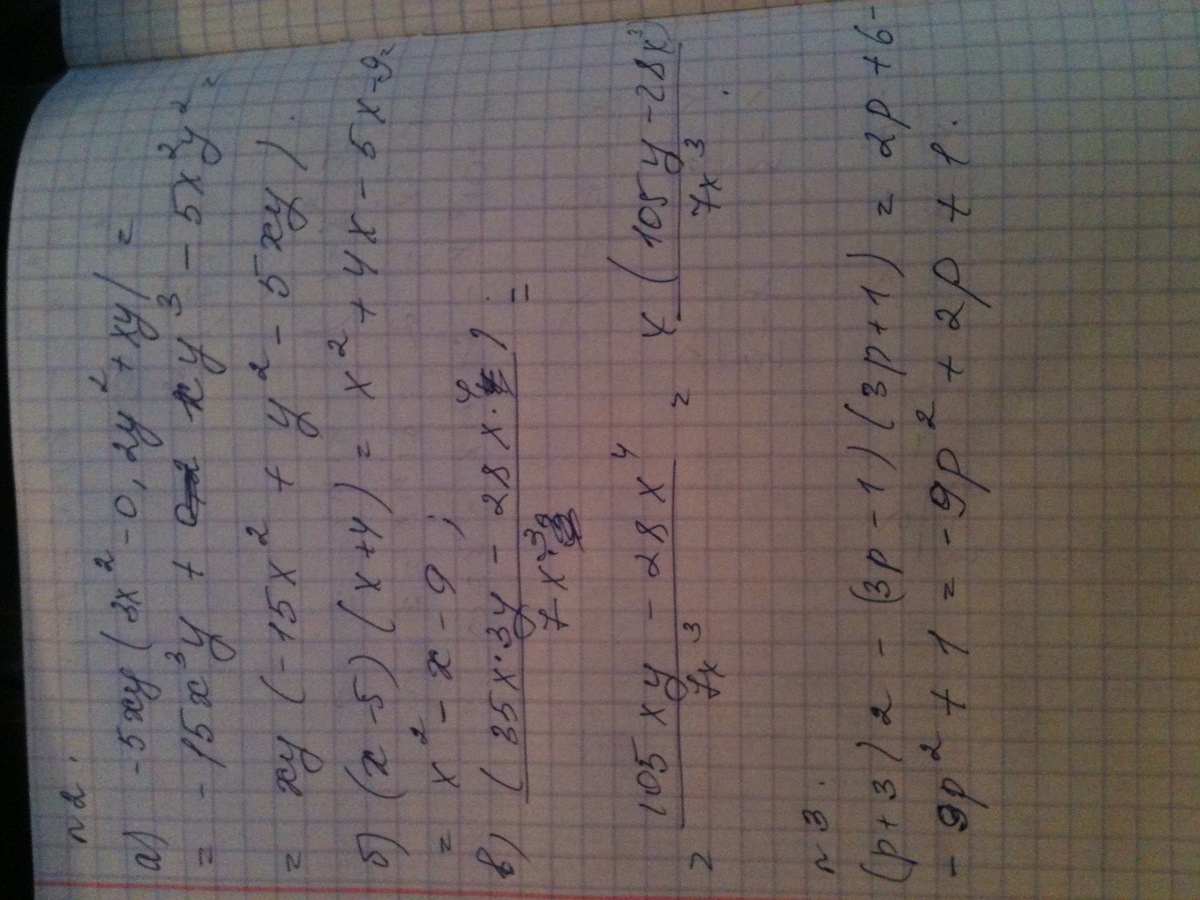 №2.
а) -5xy(3x² - 0,2y² + xy) =
= -15x³y + xy³ - 5x²y² =
= xy(-15x² + y² - 5xy).
б) (x-5)(x+4) = x² + 4x - 5x - 9 =
= x² - x - 9;
в) (35x·3y - 28x· ) / 7x³ =
= 105xy - 28x⁴ / 7x³ = x(105y - 28x³) / 7x³.
№3.
(p+3)2 - (3p-1)(3p+1) = 2p + 6 -
- 9p² + 1 = -9p² + 2p + 1.